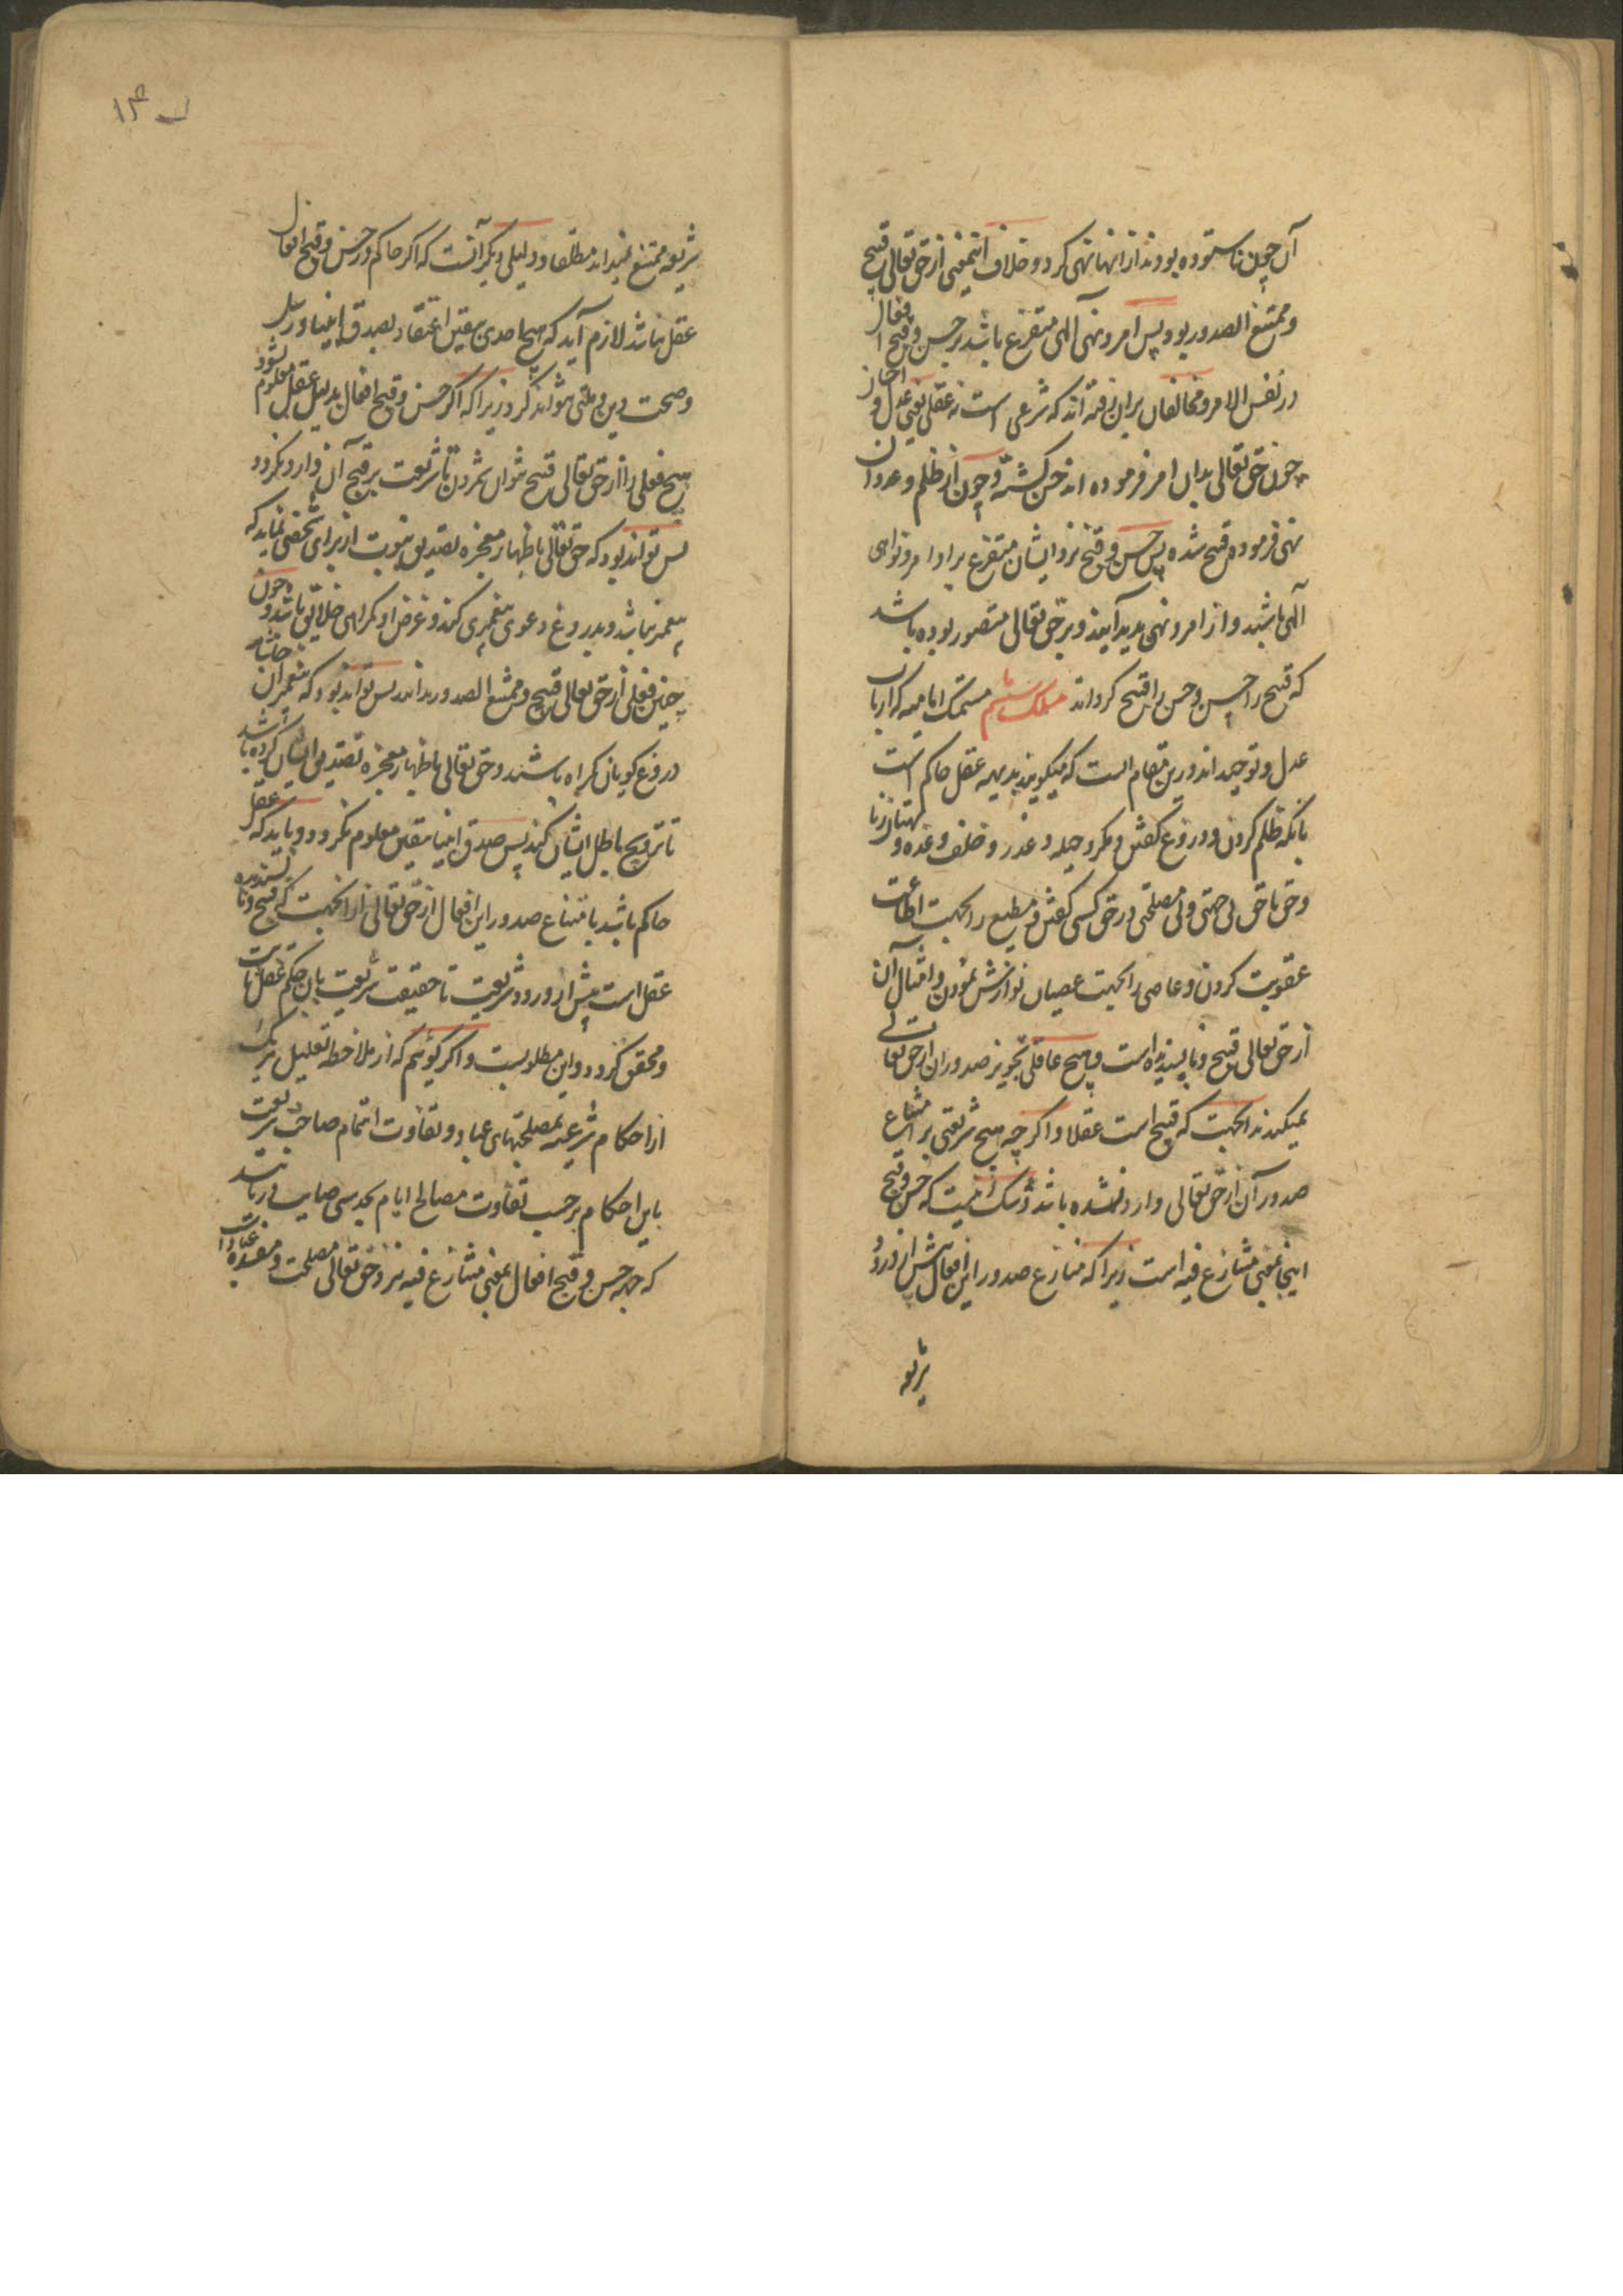 آن چون ناستوده بودند از انها نهی کرد و خلاف اینمعنی از حق تعالی قبیح
و ممتنع الصدور بود پس امر و نهی آلهی متفرع باشد بر حسن و قبح افعال
در نفس الامر و مخالفان بران رفته اند که شرعی است نه عقلی یعنی عدل و احسان
چون حق تعالی بدان امر فرموده اند حسن کشته و چون از ظلم و عدوان
نهی فرموده قبیح شده پس حسن و قبح نزد ایشان متفرع بر اوامر و نواهی
آلهی باشد و از امر و نهی پدید آیند و بر حق تعالی متصور بوده باشد
که قبیح را حسن و حسن را قبیح کرداند مسلک ششم متمسک امامیه که ارباب
عدل و توحید اند درین مقام انست که میکویند بدیهه عقل حاکم است
بانکه ظلم کردن و دروغ کفتن و مکر و حیله و غدر و خلف وعده و بهتان زنا
و حق ناحق بی جهتی و بی مصلحتی در حق کسی کفتن و مطیع را بجهت اطاعت
عقوبت کردن و عاصی را بجهت عصیان نوازش نمودن و امثال آن
از حق تعالی قبیح و ناپسندیده است و هیچ عاقلی تجویز صدور ان از حق تعالی
نمیکند بدانجهت که قبیح است عقلا و اکر چه هیچ شریعتی بر امتناع
صدور آن از حق تعالی وارد نشده باشد و شک نیست که حسن و قبح
اینجا بمعنی متنازع فیه است زیرا که منازع صدور این افعال پیش از ورود
شریعه
۱۳
شریعه ممتنع نمیداند مطلقا و دلیلی دیکر آنست که اکر حاکم در حسن و قبح افعال
عقل نباشد لازم آید که هیچ احدی بیقین اعتقاد بصدق انبیا و رسل
و صحت دین و ملتی نتواند کرد زیرا که اکر حسن و قبح افعال بدلیل عقل معلوم نشود
هیچ فعلی را از حق تعالی قبیح نتوان شمردن تا شریعت بر قبح آن وارد نکردد
پس تواند بود که حق تعالی باظهار معجزه تصدیق نبوت از برای شخصی نماید که
پیغمبر نباشد و بدروغ دعوی پیغمبری کند و غرض او کمراهی خلایق باشد و چون
چنین فعلی از حق تعالی قبیح و ممتنع الصدور نداند پس تواند بود که پیغمبران
دروغ کویان کمراه باشند و حق تعالی باظهار معجزه تصدیق ایشان کرده باشد
تا ترویج باطل ایشان کند پس صدق انبیا بیقین معلوم نکردد و باید که عقل
حاکم باشد بامتناع صدور این افعال از حق تعالی از انجهت که قبیح و ناپسندیده
عقل است پیش از ورود شریعت تا حقیقت شریعت بان حکم عقل ثابت
و محقق کردد و این مطلوبست و اکر کوئیم که از ملاحظه تعلیل هر یک
از احکام شرعیه بمصلحتهای عباد و تفاوت اتمام صاحب شریعت
باین احکام بر حسب تفاوت مصالح ایام بحدسی صایب دریابند
که حسن و قبح افعال بمعنی متنازع فیه نزد حق تعالی مصلحت و مفسده